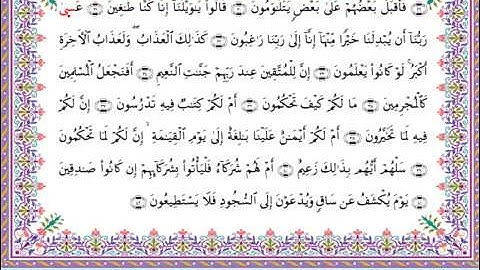 ۞ فَأَقْبَلَ بَعْضُهُمْ عَلَىٰ بَعْضٍ يَتَلَٰوَمُونَ ۞ قَالُوا۟ يَٰوَيْلَنَآ إِنَّا كُنَّا طَٰغِينَ ۞ عَسَىٰ
رَبُّنَآ أَن يُبْدِلَنَا خَيْرًا مِّنْهَآ إِنَّآ إِلَىٰ رَبِّنَا رَٰغِبُونَ ۞ كَذَٰلِكَ ٱلْعَذَابُ ۖ وَلَعَذَابُ ٱلْءَاخِرَةِ
أَكْبَرُ ۚ لَوْ كَانُوا۟ يَعْلَمُونَ ۞ إِنَّ لِلْمُتَّقِينَ عِندَ رَبِّهِمْ جَنَّٰتِ ٱلنَّعِيمِ ۞ أَفَنَجْعَلُ ٱلْمُسْلِمِينَ
كَٱلْمُجْرِمِينَ ۞ مَا لَكُمْ كَيْفَ تَحْكُمُونَ ۞ أَمْ لَكُمْ كِتَٰبٌ فِيهِ تَدْرُسُونَ ۞ إِنَّ لَكُمْ
فِيهِ لَمَا تَخَيَّرُونَ ۞ أَمْ لَكُمْ أَيْمَٰنٌ عَلَيْنَا بَٰلِغَةٌ إِلَىٰ يَوْمِ ٱلْقِيَٰمَةِ ۙ إِنَّ لَكُمْ لَمَا تَحْكُمُونَ
۞ سَلْهُمْ أَيُّهُم بِذَٰلِكَ زَعِيمٌ ۞ أَمْ لَهُمْ شُرَكَآءُ فَلْيَأْتُوا۟ بِشُرَكَآئِهِمْ إِن كَانُوا۟ صَٰدِقِينَ
۞ يَوْمَ يُكْشَفُ عَن سَاقٍ وَيُدْعَوْنَ إِلَى ٱلسُّجُودِ فَلَا يَسْتَطِيعُونَ ۞